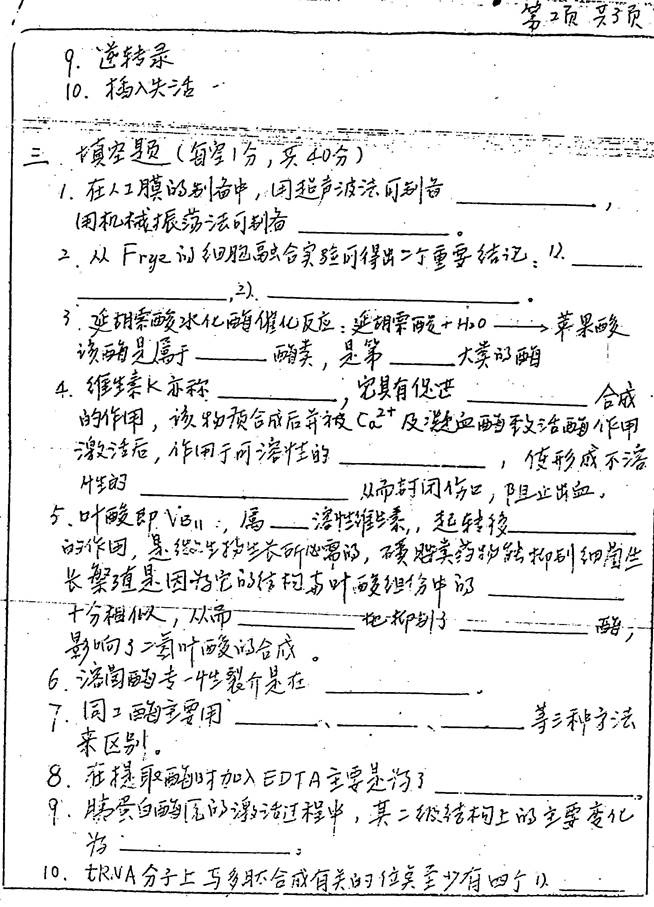 第2页 共3页
9. 逆转录
10. 插入失活
三. 填空题(每空1分,共40分)
1. 在人工膜的制备中,用超声波法可制备 ________,
用机械振荡法可制备 ________。
2. 从 Frye 的细胞融合实验可得出二个重要结论:1). ____
________,2). ________.
3. 延胡索酸水化酶催化反应:延胡索酸+H₂O ⟶ 苹果酸
该酶是属于 ____ 酶类,是第 ____ 大类的酶
4. 维生素K亦称 ________,它具有促进 ________ 合成
的作用,该物质合成后并被 Ca²⁺ 及凝血酶致活酶作用
激活后,作用于可溶性的 ________,使形成不溶
性的 ________ 从而封闭伤口,阻止出血.
5. 叶酸即 VB₁₁,属 ____ 溶性维生素,起转移 ________
的作用,是微生物生长所必需的,磺胺类药物能抑制细菌生
长繁殖是因为它的结构与叶酸组份中的 ________
十分相似,从而 ________ 地抑制了 ________ 酶,
影响了二氢叶酸的合成。
6. 溶菌酶专一性裂介是在 ________.
7. 同工酶主要用 ____、____、____ 等三种方法
来区别。
8. 在提取酶时加入 EDTA 主要是为了 ________.
9. 胰蛋白酶原的激活过程中,其二级结构上的主要变化
为 ________.
10. tRNA 分子上与多肽合成有关的位点至少有四个 1). ____